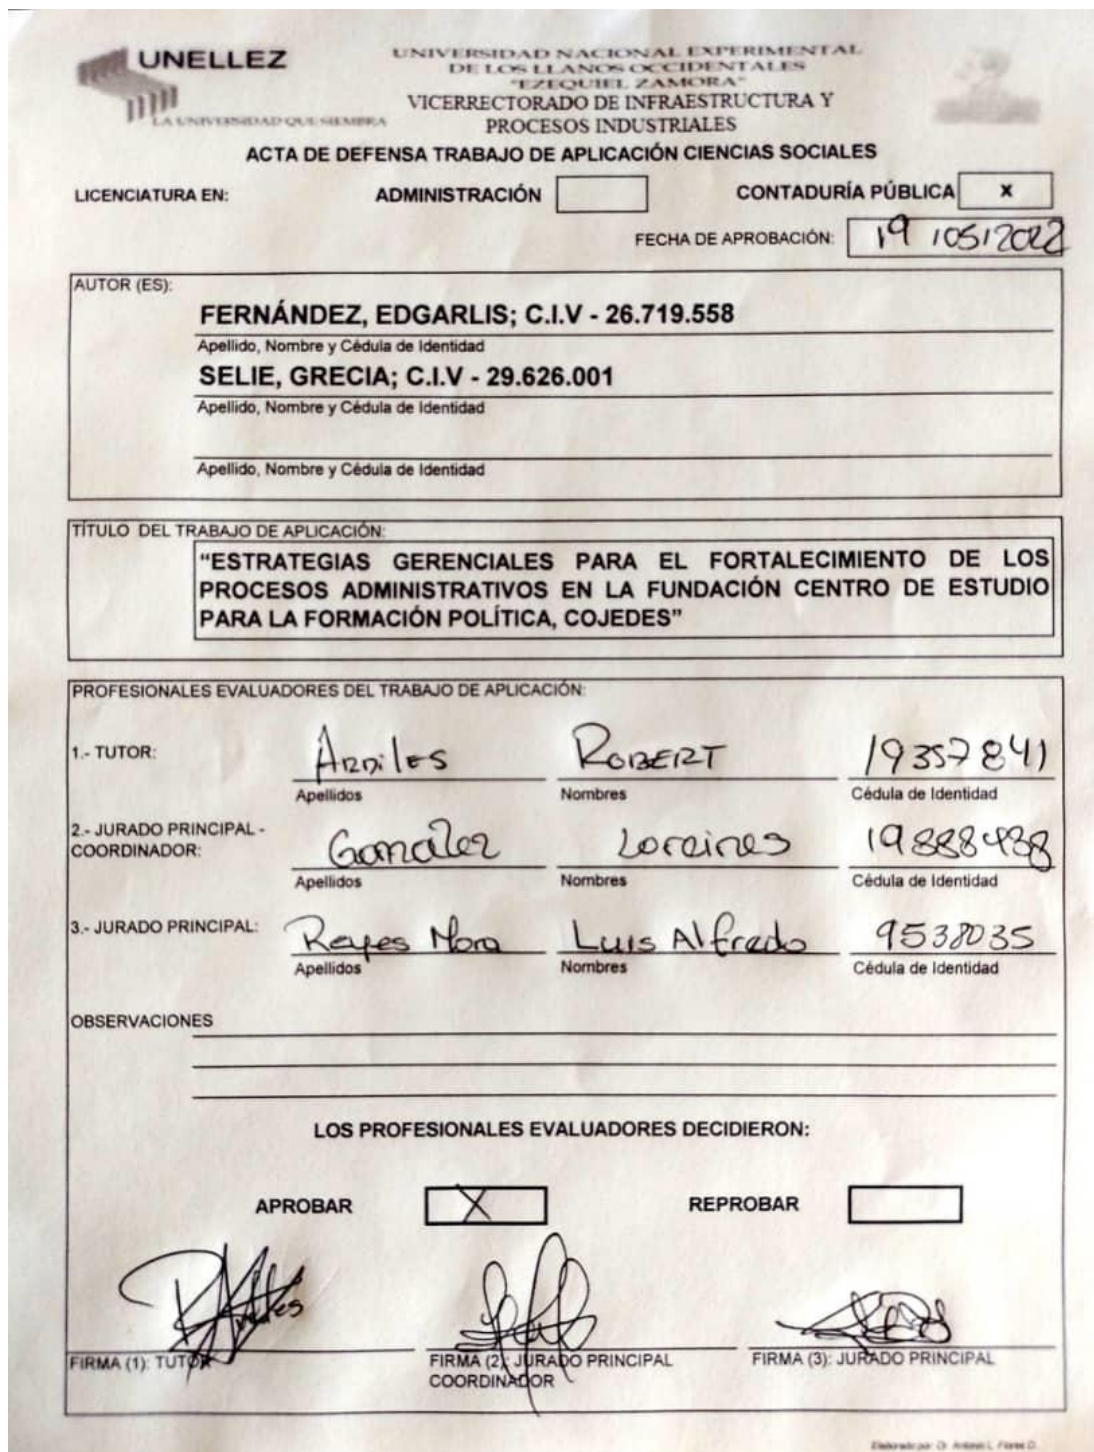 UNELLEZ
LA UNIVERSIDAD QUE SIEMBRA
UNIVERSIDAD NACIONAL EXPERIMENTAL
DE LOS LLANOS OCCIDENTALES
"EZEQUIEL ZAMORA"
VICERRECTORADO DE INFRAESTRUCTURA Y
PROCESOS INDUSTRIALES
ACTA DE DEFENSA TRABAJO DE APLICACIÓN CIENCIAS SOCIALES
LICENCIATURA EN: ADMINISTRACIÓN CONTADURÍA PÚBLICA x
FECHA DE APROBACIÓN: 19/05/2022
AUTOR (ES):
FERNÁNDEZ, EDGARLIS; C.I.V - 26.719.558
Apellido, Nombre y Cédula de Identidad
SELIE, GRECIA; C.I.V - 29.626.001
Apellido, Nombre y Cédula de Identidad
Apellido, Nombre y Cédula de Identidad
TÍTULO DEL TRABAJO DE APLICACIÓN:
"ESTRATEGIAS GERENCIALES PARA EL FORTALECIMIENTO DE LOS
PROCESOS ADMINISTRATIVOS EN LA FUNDACIÓN CENTRO DE ESTUDIO
PARA LA FORMACIÓN POLÍTICA, COJEDES"
PROFESIONALES EVALUADORES DEL TRABAJO DE APLICACIÓN:
1.- TUTOR: ROBERT 19357841
Apellidos Nombres Cédula de Identidad
2.- JURADO PRINCIPAL -
COORDINADOR: González Loreines 19888438
Apellidos Nombres Cédula de Identidad
3.- JURADO PRINCIPAL: Reyes Mora Luis Alfredo 9538035
Apellidos Nombres Cédula de Identidad
OBSERVACIONES
LOS PROFESIONALES EVALUADORES DECIDIERON:
APROBAR X REPROBAR
FIRMA (1): TUTOR FIRMA (2): JURADO PRINCIPAL FIRMA (3): JURADO PRINCIPAL
COORDINADOR
Elaborado por: Dr. Antonio L. Flores D.